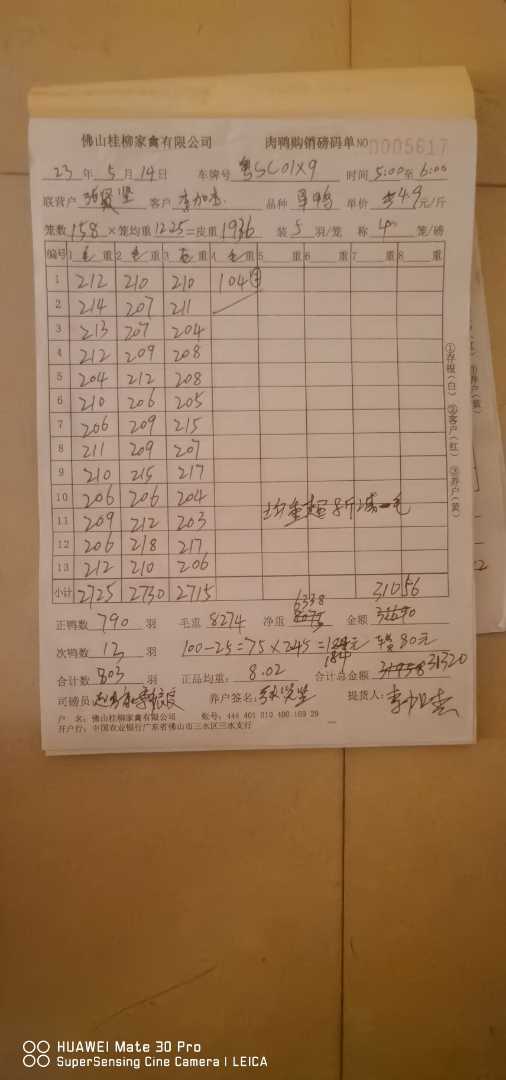 佛山桂柳家禽有限公司 肉鸭购销磅码单 NO 0005617
23 年 5 月 14 日 车牌号 粤SC01X9 时间 5:00 至 6:00
联营户 客户 品种 单价 4.9 元/斤
笼数 158 × 笼均重 12.25 = 皮重 1936 装 5 羽/笼 称 4 笼/磅
编号 1 毛 重 2 毛 重 3 毛 重 4 毛 重 5 重 6 重 7 重 8 重
1 212 210 210 104
2 214 207 211
3 213 207 204
4 212 209 208
5 204 212 208
6 210 206 205
7 206 209 215
8 211 209 207
9 210 215 217
10 206 206 204
11 209 212 203
12 206 218 217
13 212 210 206
小计 2725 2730 2715
①存根(白) ②客户(红) ③养户(黄)
正鸭数 790 羽 毛重 8274 净重 6338 金额 31056
次鸭数 13 羽 100-25=75×2.45=184元 80元
合计数 803 羽 正品均重: 8.02 合计总金额 31320
司磅员 养户签名: 提货人:
户 名: 佛山桂柳家禽有限公司 帐号: 444 401 010 400 169 29
开户行: 中国农业银行广东省佛山市三水区三水支行
HUAWEI Mate 30 Pro
SuperSensing Cine Camera | LEICA